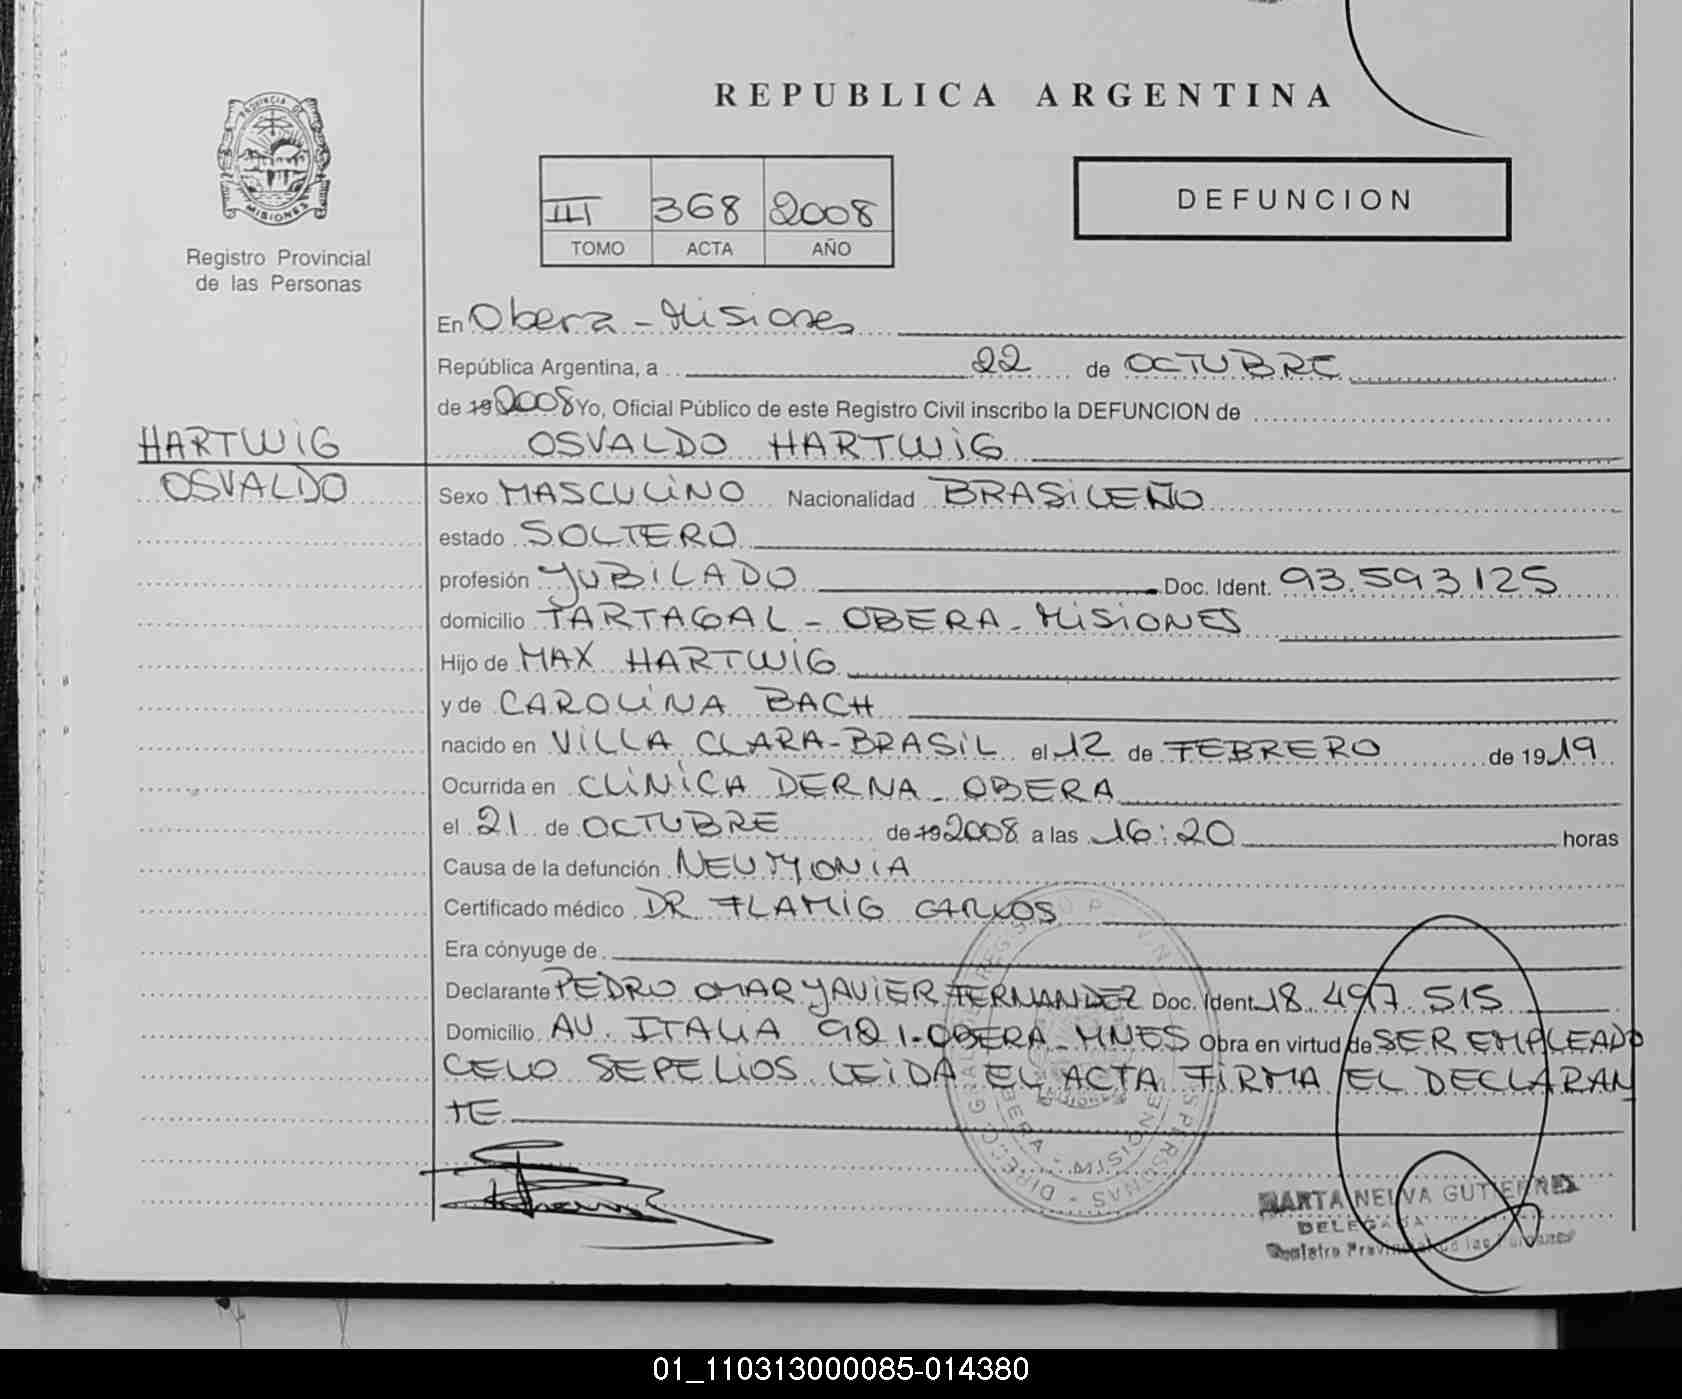 REPUBLICA ARGENTINA
PROVINCIA DE
MISIONES
Registro Provincial
de las Personas
III 368 2008
TOMO ACTA AÑO
DEFUNCION
En Obera - Misiones
República Argentina, a 22 de OCTUBRE
de 19 2008 Yo, Oficial Público de este Registro Civil inscribo la DEFUNCION de
HARTWIG OSVALDO HARTWIG
OSVALDO Sexo MASCULINO Nacionalidad BRASILEÑO
estado SOLTERO
profesión JUBILADO Doc. Ident. 93.593125
domicilio TARTAGAL - OBERA - MISIONES
Hijo de MAX HARTWIG
y de CAROLINA BACH
nacido en VILLA CLARA - BRASIL el 12 de FEBRERO de 1919
Ocurrida en CLINICA DERNA - OBERA
el 21 de OCTUBRE de 19 2008 a las 16:20 horas
Causa de la defunción NEUMONIA
Certificado médico DR FLAMIG CARLOS
Era cónyuge de
Declarante PEDRO OMAR JAVIER FERNANDEZ Doc. Ident 18.497.515
Domicilio AV. ITALIA 921 - OBERA - MNES Obra en virtud de SER EMPLEADO
CELO SEPELIOS LEIDA EL ACTA FIRMA EL DECLARAN
TE
MARTA NEUVA GUTIERREZ
DELEGADA
Registro Provincial de las Personas
01_110313000085-014380